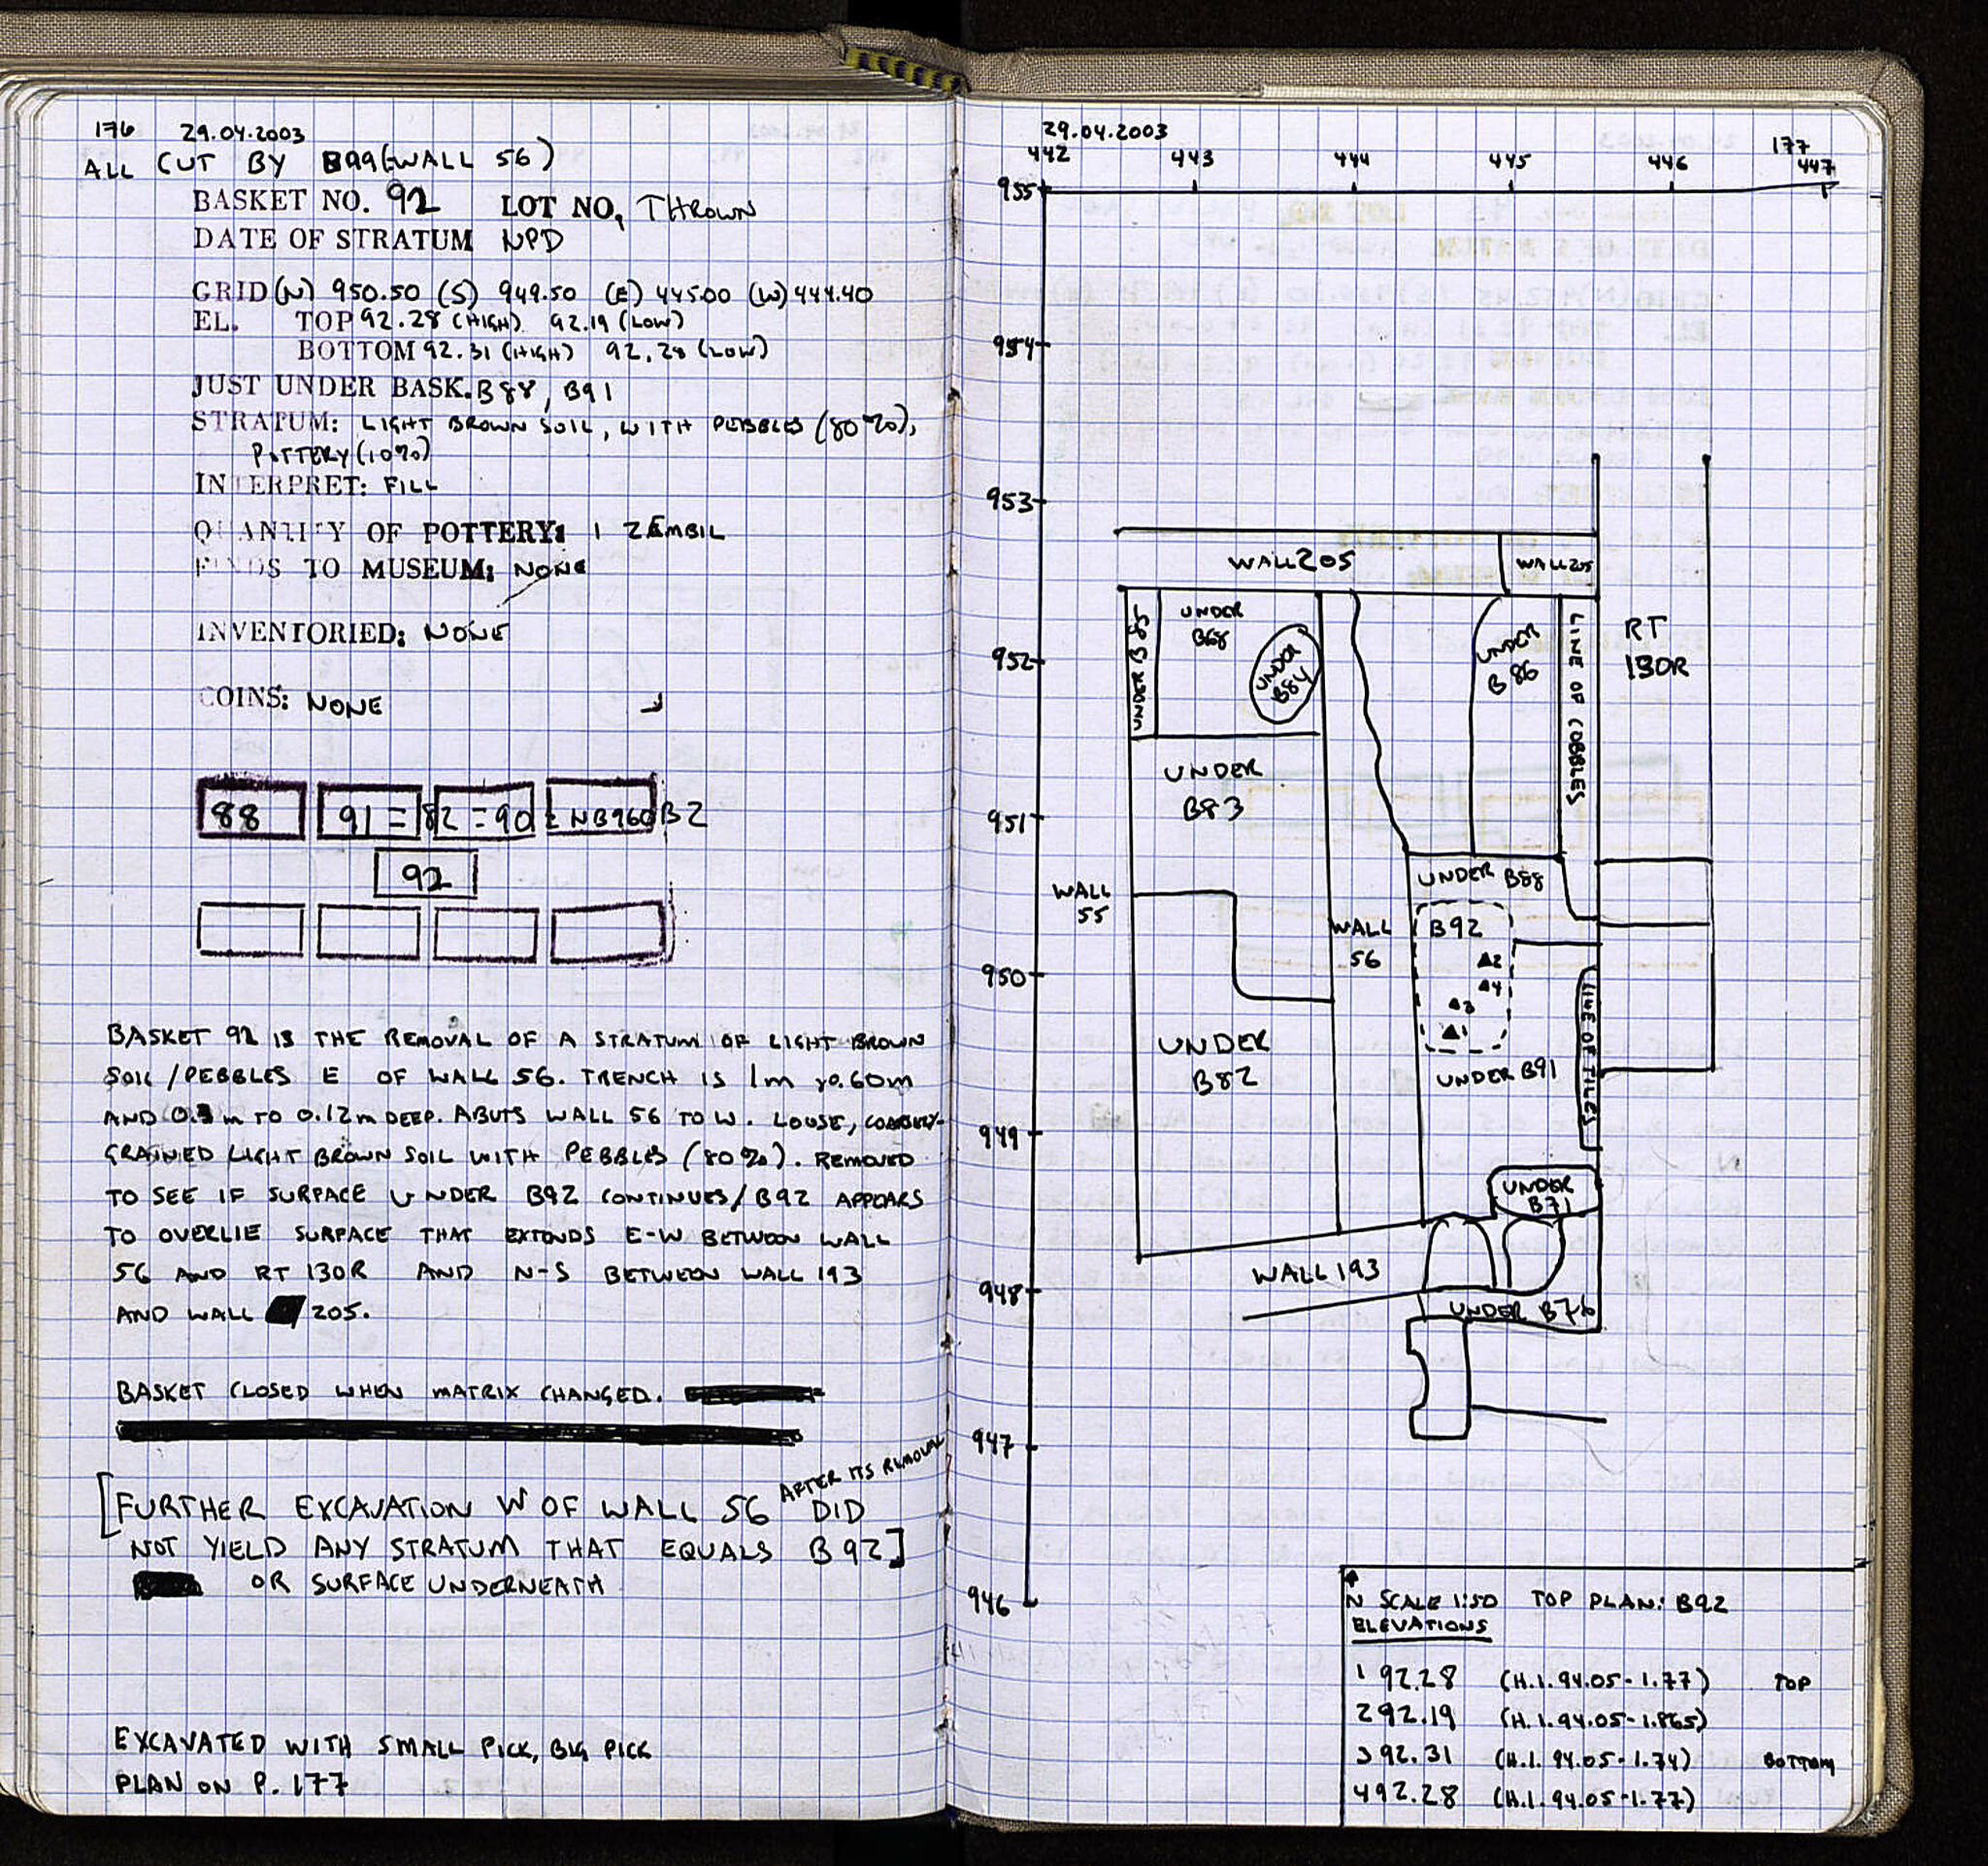 176 29.04.2003
ALL CUT BY B99 (WALL 56)
BASKET NO. 92 LOT NO, THROWN
DATE OF STRATUM NPD
GRID (N) 950.50 (S) 949.50 (E) 445.00 (W) 444.40
EL. TOP 92.28 (HIGH) 92.19 (LOW)
BOTTOM 92.31 (HIGH) 92.28 (LOW)
JUST UNDER BASK. B88, B91
STRATUM: LIGHT BROWN SOIL, WITH PEBBLES (80%),
POTTERY (10%)
INTERPRET: FILL
QUANTITY OF POTTERY: 1 ZEMBIL
FINDS TO MUSEUM: NONE
INVENTORIED: NONE
COINS: NONE
88 91 = 82 = 90 = NB960 B2
92
BASKET 92 IS THE REMOVAL OF A STRATUM OF LIGHT BROWN
SOIL / PEBBLES E OF WALL 56. TRENCH IS 1m x 0.60m
AND m TO 0.12m DEEP. ABUTS WALL 56 TO W. LOOSE, COARSELY-
GRAINED LIGHT BROWN SOIL WITH PEBBLES (80%). REMOVED
TO SEE IF SURFACE UNDER B92 CONTINUES / B92 APPEARS
TO OVERLIE SURFACE THAT EXTENDS E-W BETWEEN WALL
56 AND RT 130R AND N-S BETWEEN WALL 193
AND WALL 205.
BASKET CLOSED WHEN MATRIX CHANGED.
[FURTHER EXCAVATION W OF WALL 56 AFTER ITS REMOVAL DID
NOT YIELD ANY STRATUM THAT EQUALS B92]
OR SURFACE UNDERNEATH
EXCAVATED WITH SMALL PICK, BIG PICK
PLAN ON P. 177
29.04.2003 177
442 443 444 445 446 447
955
954
953
WALL 205 WALL 205
UNDER B85
UNDER
B68
UNDER
B84
UNDER
B86
LINE OF COBBLES
RT
130R
952
UNDER
B83
951
UNDER B88
WALL
55
WALL
56
B92
2
4
3
1
950
UNDER
B82
UNDER B91
LINE OF TILES
949
UNDER
B71
WALL 193
948
UNDER B76
947
946
N SCALE 1:50 TOP PLAN: B92
ELEVATIONS
1 92.28 (H.I. 94.05-1.77) TOP
2 92.19 (H.I. 94.05-1.865)
3 92.31 (H.I. 94.05-1.74) BOTTOM
4 92.28 (H.I. 94.05-1.77)